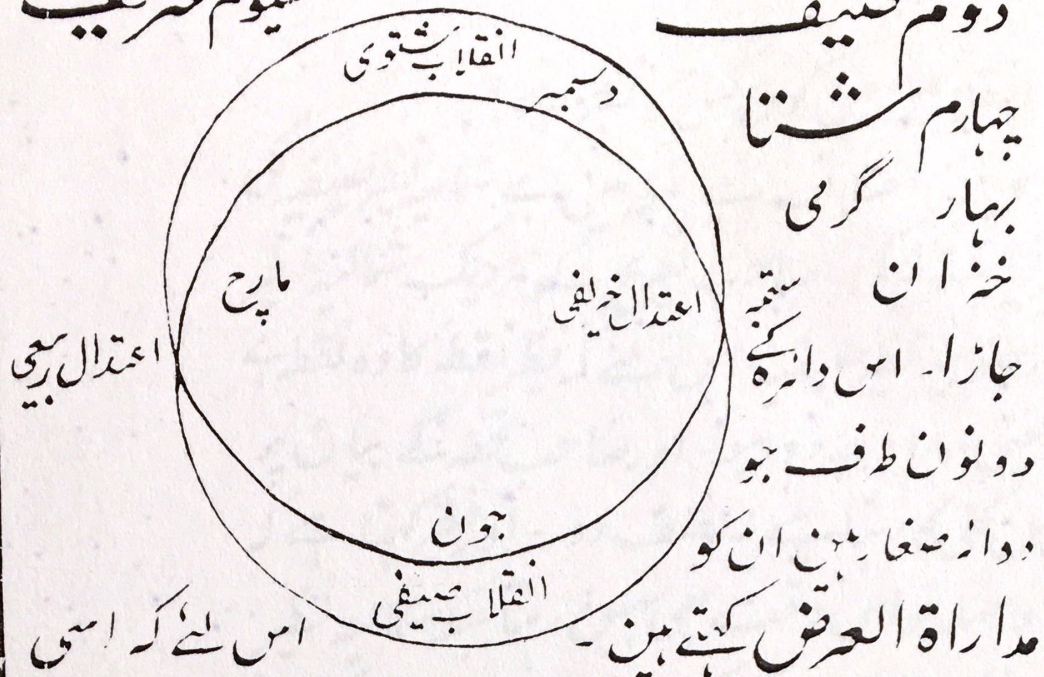 دوم سیوم
چہارم شتا
بہار گرمی
خزان
جاڑا۔ اس دائرہ کے
دونون طرف جو
دوائر صغار ہین ان کو
مداراة العرض کہتے ہین۔ اس لئے کہ اسی
انقلاب شتوی
دسمبر
مارچ
اعتدال خریفی
ستمبر
اعتدال ربیعی
جون
انقلاب صیفی